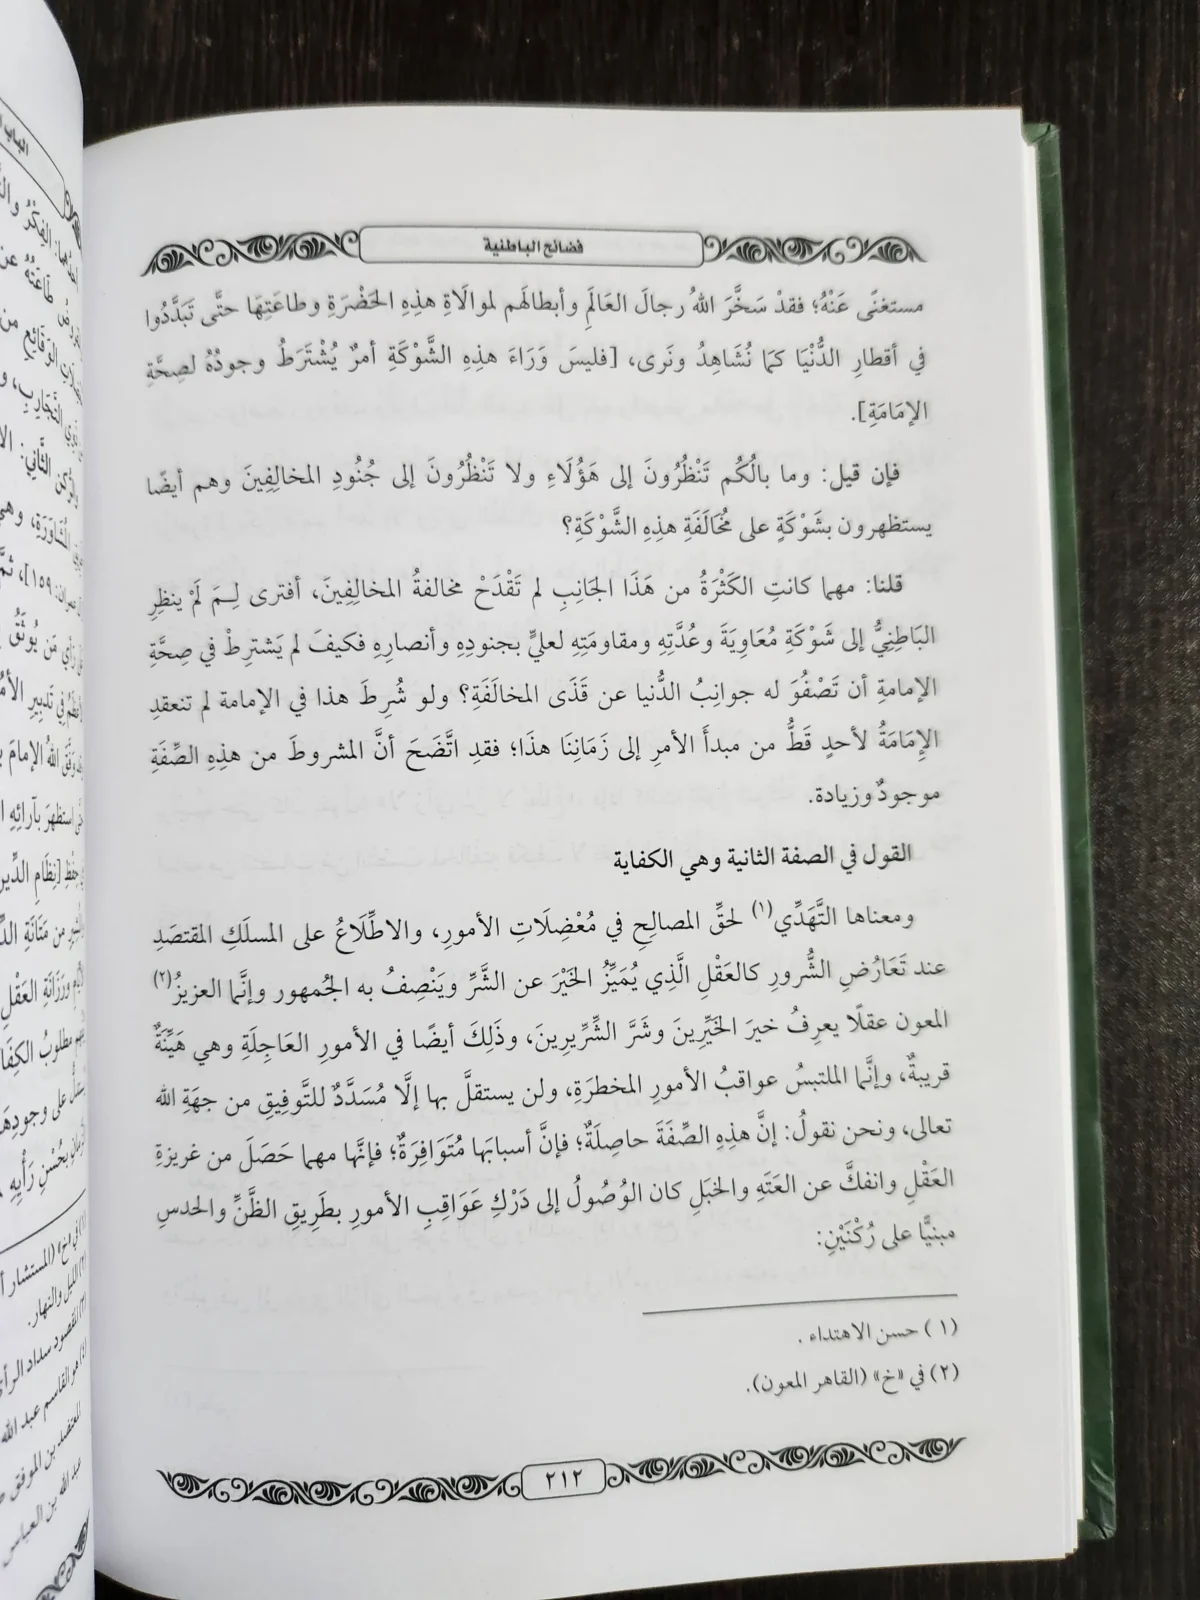 فضائح الباطنية
مستغنًى عَنْهُ؛ فقدْ سَخَّرَ اللهُ رجالَ العَالَمِ وأبطالَهم لموالَاةِ هذِهِ الحَضْرَةِ وطاعَتِهَا حتَّى تَبَدَّدُوا
في أقطارِ الدُّنْيَا كمَا نُشَاهِدُ ونَرى، [فليسَ وَرَاءَ هذِهِ الشَّوْكَةِ أمرٌ يُشْتَرَطُ وجودُهُ لصِحَّةِ
الإمَامَةِ].
فإن قيل: وما بالُكُم تَنْظُرُونَ إلى هَؤُلَاءِ ولا تَنْظُرُونَ إلى جُنُودِ المخالِفِينَ وهم أيضًا
يستظهرون بشَوْكَةٍ على مُخَالَفَةِ هذِهِ الشَّوْكَةِ؟
قلنا: مهما كانتِ الكَثْرَةُ من هَذَا الجَانِبِ لم تَقْدَحْ مخالفةُ المخالِفِينَ، أفترى لِـمَ لَمْ ينظرِ
البَاطِنِيُّ إلى شَوْكَةِ مُعَاوِيَةَ وعُدَّتِهِ ومقاومَتِهِ لعليٍّ بجنودِهِ وأنصارِهِ فكيفَ لم يَشترِطْ في صِحَّةِ
الإمامةِ أن تَصْفُوَ له جوانِبُ الدُّنيا عن قَذَى المخالَفَةِ؟ ولو شُرِطَ هذا في الإمامة لم تنعقدِ
الإِمَامَةُ لأحدٍ قَطُّ من مبدأَ الأمرِ إلى زَمَانِنَا هذَا؛ فقدِ اتَّضَحَ أنَّ المشروطَ من هذِهِ الصِّفَةِ
موجودٌ وزيادة.
القول في الصفة الثانية وهي الكفاية
ومعناها التَّهَدِّي(١) لحقِّ المصالِحِ في مُعْضِلَاتِ الأمورِ، والاطِّلَاعُ على المسلَكِ المقتصَدِ
عند تَعَارُضِ الشُّرورِ كالعَقْلِ الَّذِي يُمَيِّزُ الخَيْرَ عن الشَّرِّ ويَنْصِفُ به الجُمهور وإنَّما العزيزُ(٢)
المعون عقلًا يعرِفُ خيرَ الخَيِّرِينَ وشَرَّ الشِّرِّيرِينَ، وذَلِكَ أيضًا في الأمورِ العَاجِلَةِ وهي هَيِّنَةٌ
قريبةٌ، وإنَّما الملتبسُ عواقبُ الأمورِ المخطرَةِ، ولن يستقلَّ بها إلَّا مُسَدَّدٌ للتَّوفِيقِ من جهَةِ الله
تعالى، ونحن نقولُ: إنَّ هذِهِ الصِّفَةَ حاصِلَةٌ؛ فإنَّ أسبابَها مُتَوَافِرَةٌ؛ فإنَّها مهما حَصَلَ من غريزةِ
العَقْلِ وانفكَّ عن العَتَهِ والخبَلِ كان الوُصُولُ إلى دَرْكِ عَوَاقِبِ الأمورِ بطَرِيقِ الظَّنِّ والحدسِ
مبنيًّا على رُكْنَيْنِ:
(١) حسن الاهتداء .
(٢) في «خ» (القاهر المعون).
٢١٢